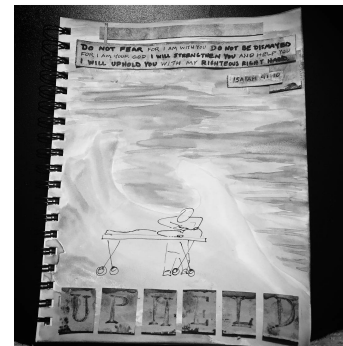 DO NOT FEAR FOR I AM WITH YOU DO NOT BE DISMAYED
FOR I AM YOUR GOD I WILL STRENGTHEN YOU AND HELP YOU
I WILL UPHOLD YOU WITH MY RIGHTEOUS RIGHT HAND
ISAIAH 41:10
UPHELD